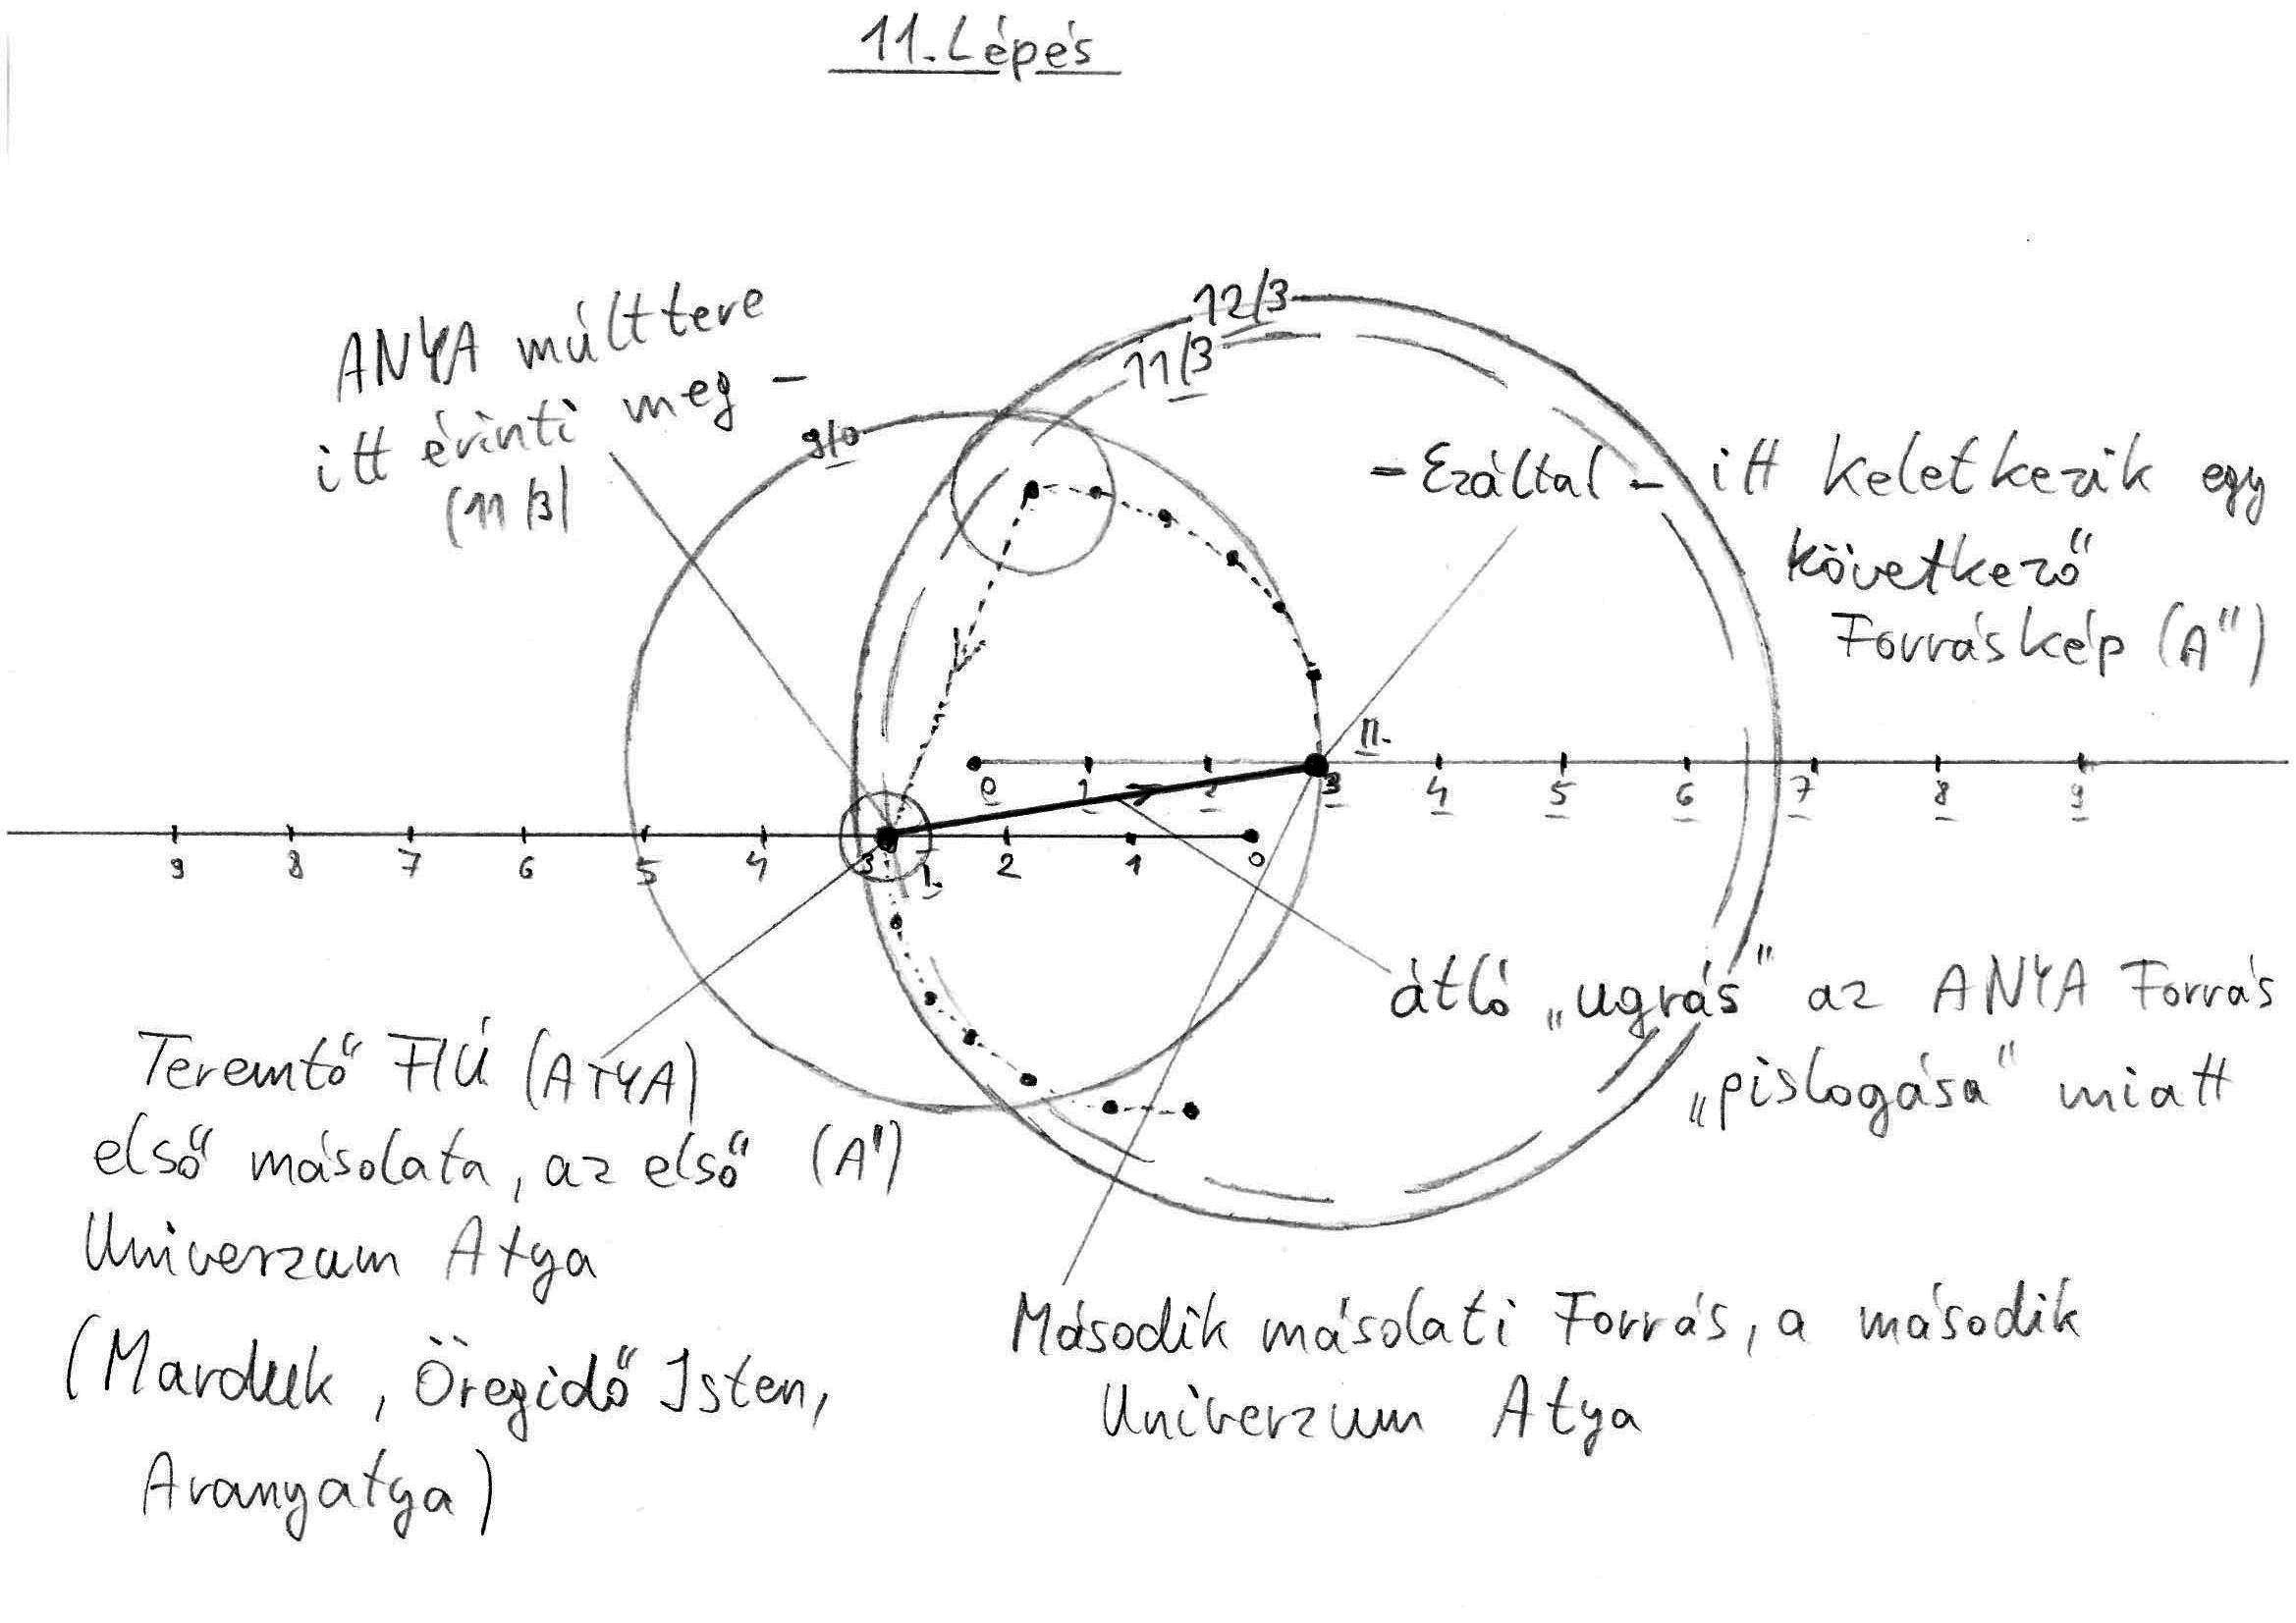 11. Lépés
ANYA múlttere
itt érinti meg –
(11/3)
12/3
11/3
9/0
– Ezáltal – itt keletkezik egy
következő
Forráskép (A")
II.
0 1 2 3 4 5 6 7 8 9
9 8 7 6 5 4 3 I. 2 1 0
átló „ugrás" az ANYA Forrás
„pislogása" miatt
Teremtő FIÚ (ATYA)
első másolata, az első (A')
Univerzum Atya
(Marduk, Öregidő Isten,
Aranyatya)
Második másolati Forrás, a második
Univerzum Atya